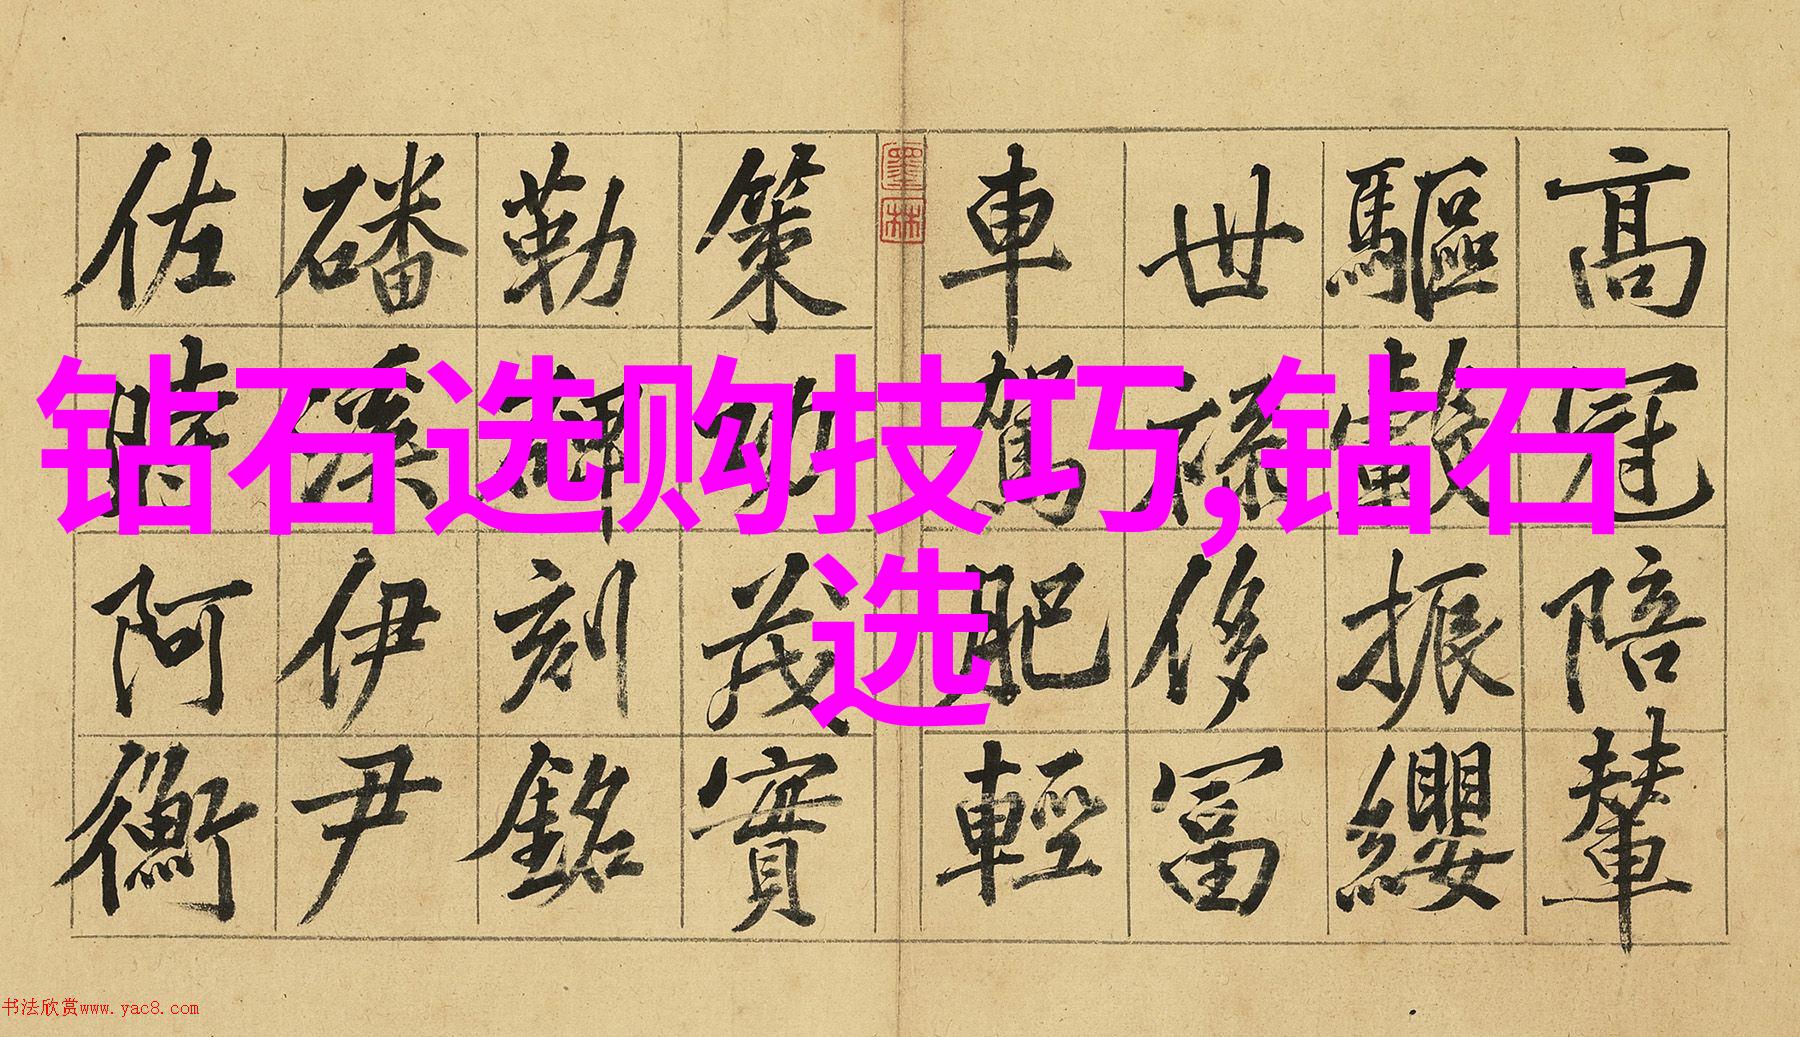 钻石选购技巧,钻石
选
高冠陪輦
驅轂振纓
世祿侈富
車駕肥輕
墨林
策功茂實
勒碑刻銘
磻溪伊尹
佐時阿衡
书法欣赏www.yac8.com